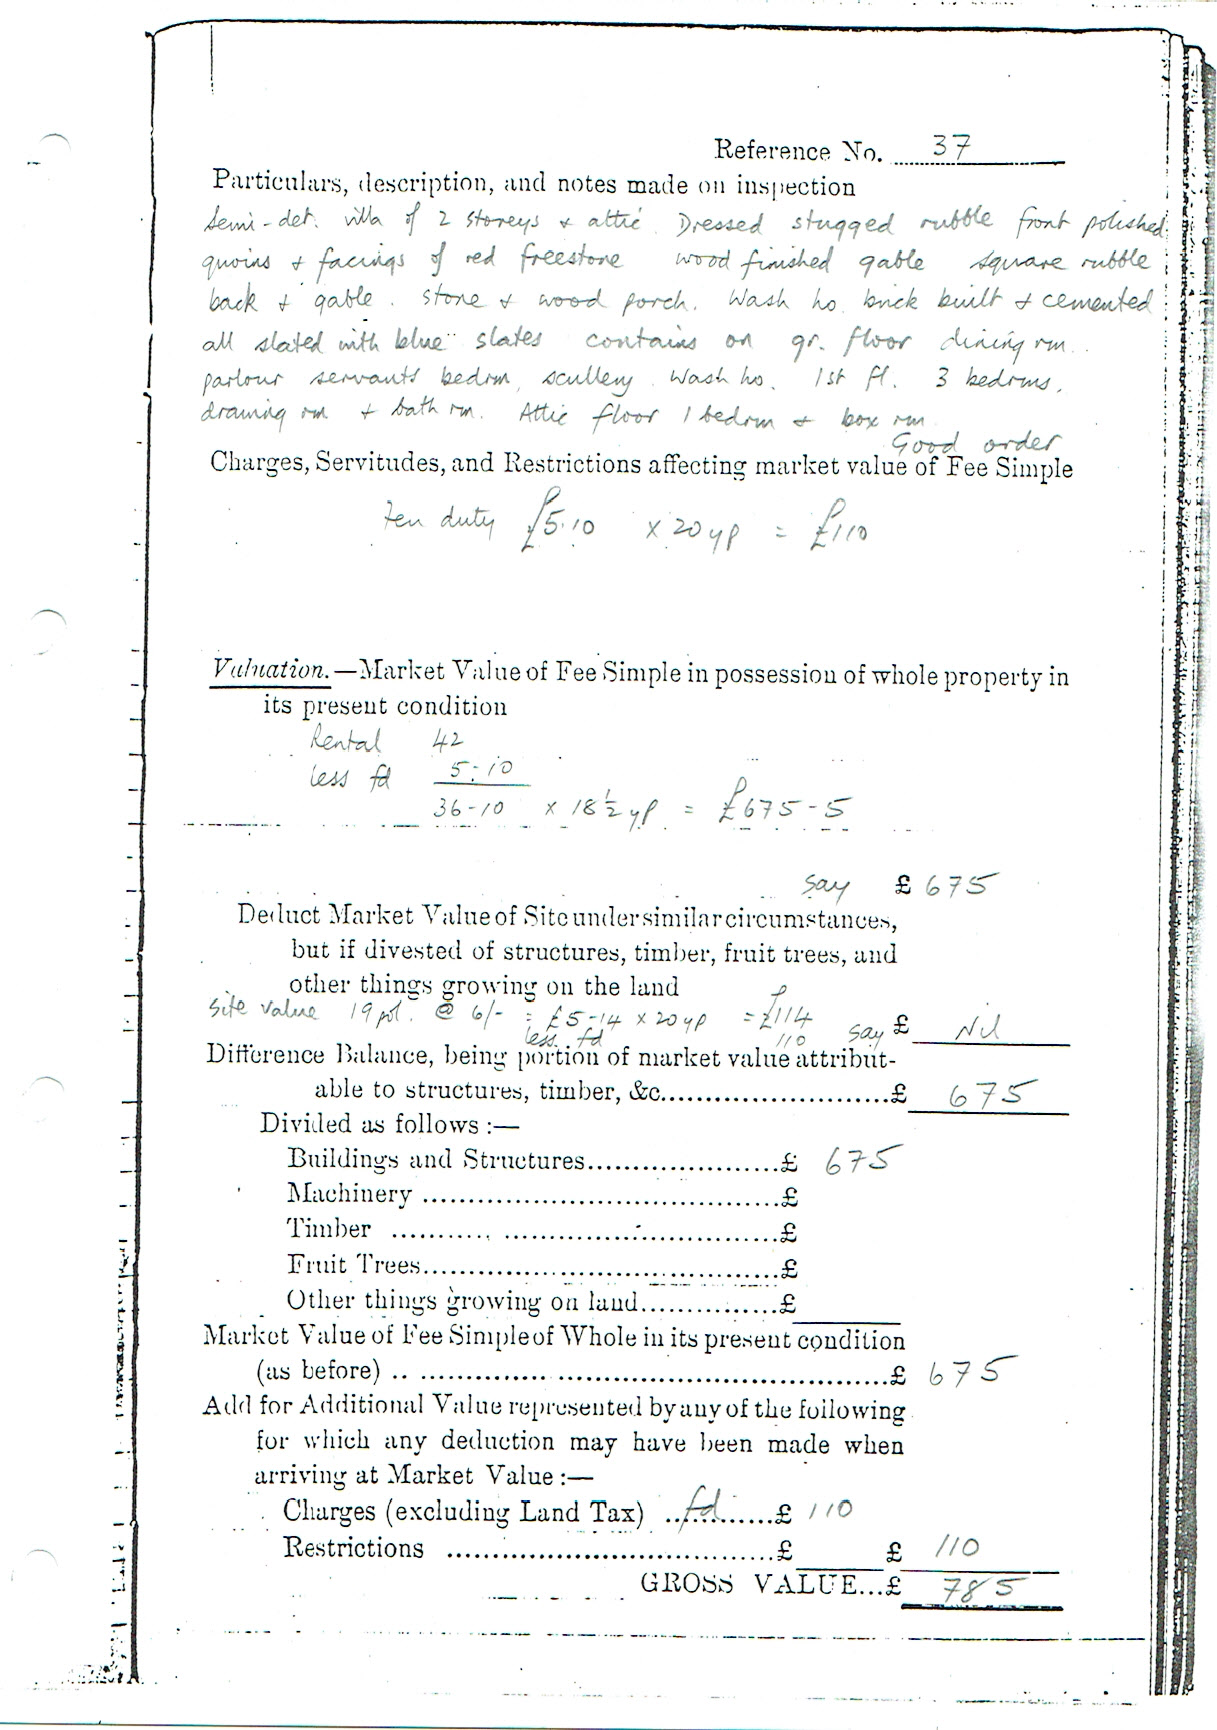 Reference No. 37
Particulars, description, and notes made on inspection
semi-det. villa of 2 storeys & attic. Dressed stugged rubble front polished
quoins & facings of red freestone wood finished gable square rubble
back & gable. stone & wood porch. Wash ho. brick built & cemented
all slated with blue slates contains on gr. floor dining rm.
parlour servants bedrm, scullery. Wash ho. 1st fl. 3 bedrms,
drawing rm & bath rm. Attic floor 1 bedrm & box rm
Good order
Charges, Servitudes, and Restrictions affecting market value of Fee Simple
feu duty £5.10 x 20 yp = £110
Valuation.—Market Value of Fee Simple in possession of whole property in
its present condition
Rental 42
less fd 5.10
36-10 x 18½ yp = £675-5
say £ 675
Deduct Market Value of Site under similar circumstances,
but if divested of structures, timber, fruit trees, and
other things growing on the land
Site value 19 pol. @ 6/- = £5-14 x 20 yp = £114 say £ Nil
less fd 110
Difference Balance, being portion of market value attribut-
able to structures, timber, &c........................£ 675
Divided as follows :—
Buildings and Structures......................£ 675
Machinery ....................................£
Timber ....................................£
Fruit Trees....................................£
Other things growing on land..............£
Market Value of Fee Simple of Whole in its present condition
(as before) ....................................................£ 675
Add for Additional Value represented by any of the following
for which any deduction may have been made when
arriving at Market Value :—
Charges (excluding Land Tax) ..fd........£ 110
Restrictions ..................................£ £ 110
GROSS VALUE...£ 785